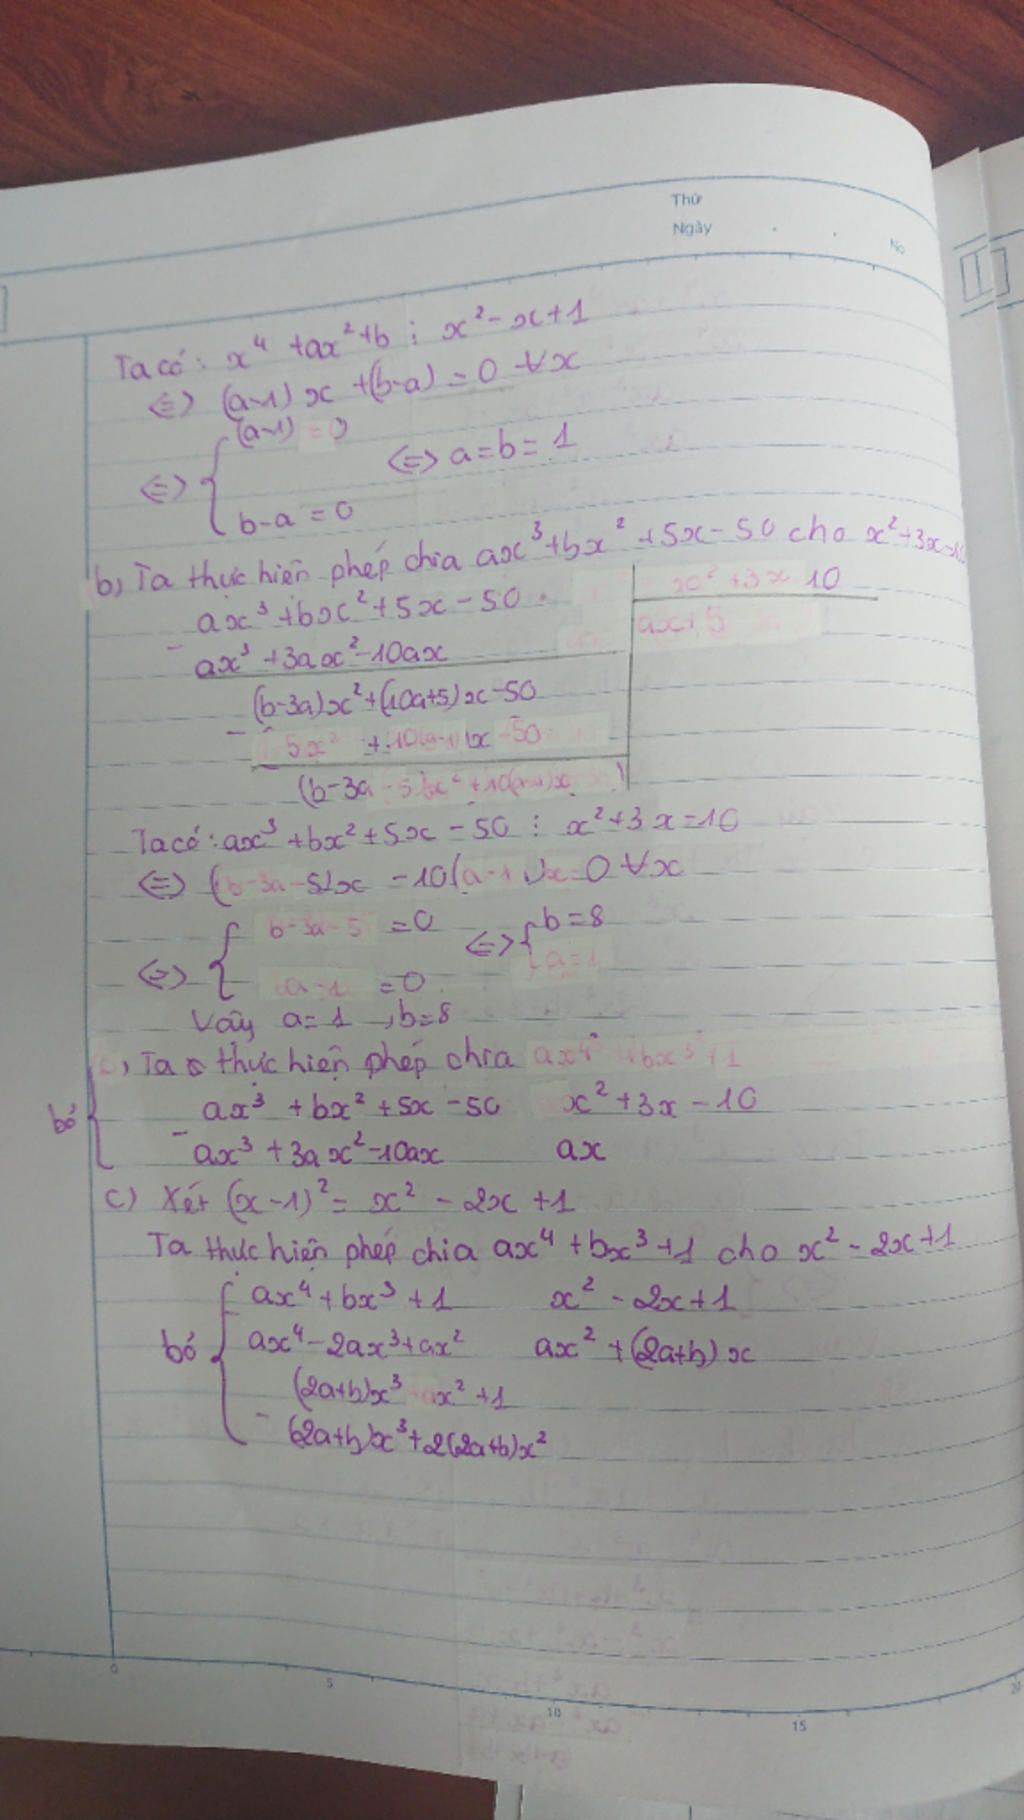 Thứ
Ngày
No
Ta có: x⁴ + ax² + b ⋮ x² - x + 1
⇔ (a-1)x + (b-a) = 0 ∀x
(a-1) = 0
⇔ { ⇔ a = b = 1
b - a = 0
b, Ta thực hiện phép chia ax³ + bx² + 5x - 50 cho x² + 3x - 10
ax³ + bx² + 5x - 50 x² + 3x 10
- ax³ + 3ax² - 10ax ax + 5
(b-3a)x² + (10a+5)x - 50
- 5x² + 10(a-1)x - 50
(b-3a - 5)x² + 10(a-1)x
Ta có: ax³ + bx² + 5x - 50 ⋮ x² + 3x = 10
⇔ (b-3a-5)x - 10(a-1)x = 0 ∀x
b-3a-5 = 0 b = 8
⇔ { ⇔ { a = 1
a-1 = 0
Vậy a = 1, b = 8
c, Ta thực hiện phép chia ax⁴ + bx³ + 1
ax³ + bx² + 5x - 50 x² + 3x - 10
bỏ
- ax³ + 3ax² - 10ax ax
c) Xét (x-1)² = x² - 2x + 1
Ta thực hiện phép chia ax⁴ + bx³ + 1 cho x² - 2x + 1
ax⁴ + bx³ + 1 x² - 2x + 1
bỏ ax⁴ - 2ax³ + ax² ax² + (2a+b)x
(2a+b)x³ - ax² + 1
- (2a+b)x³ + 2(2a+b)x²
0 5 10 15 20